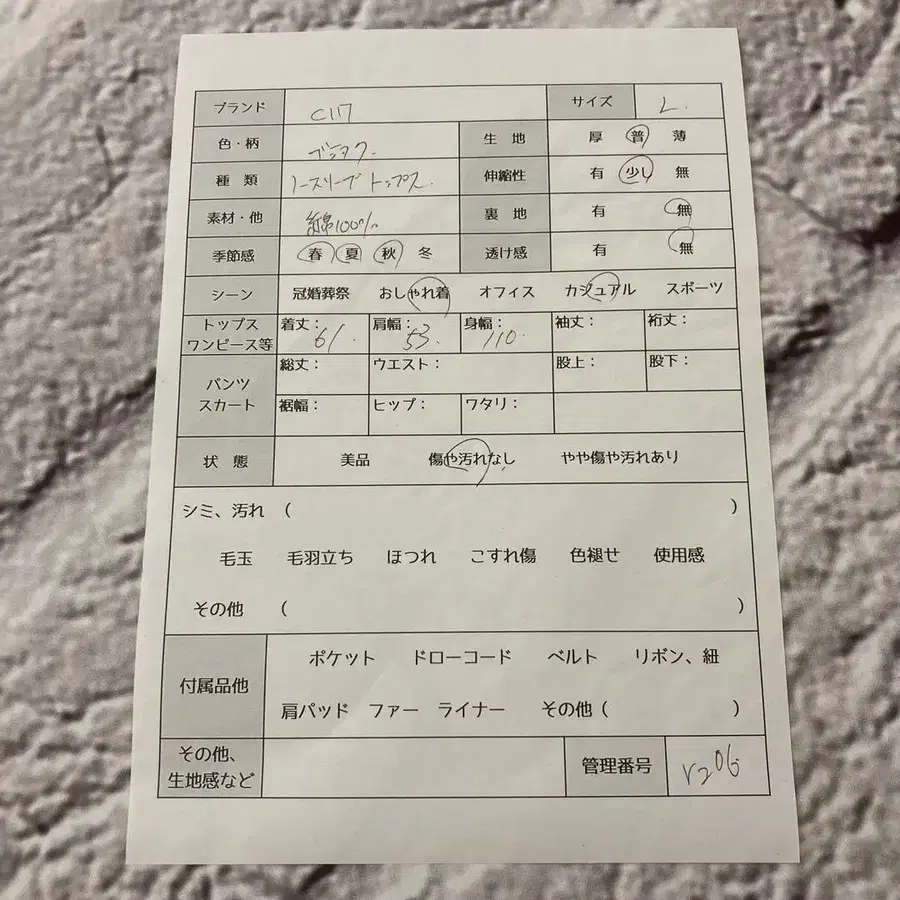 ブランド C117 サイズ L.
色・柄 ブラック. 生地 厚 普 薄
種類 ノースリーブ トップス. 伸縮性 有 少し 無
素材・他 綿100% 裏地 有 無
季節感 春 夏 秋 冬 透け感 有 無
シーン 冠婚葬祭 おしゃれ着 オフィス カジュアル スポーツ
トップス ワンピース等 着丈: 61. 肩幅: 53. 身幅: 110. 袖丈: 裄丈:
パンツ スカート 総丈: ウエスト: 股上: 股下:
裾幅: ヒップ: ワタリ:
状態 美品 傷や汚れなし やや傷や汚れあり
シミ、汚れ ( )
毛玉 毛羽立ち ほつれ こすれ傷 色褪せ 使用感
その他 ( )
付属品他 ポケット ドローコード ベルト リボン、紐
肩パッド ファー ライナー その他 ( )
その他、生地感など 管理番号 r206